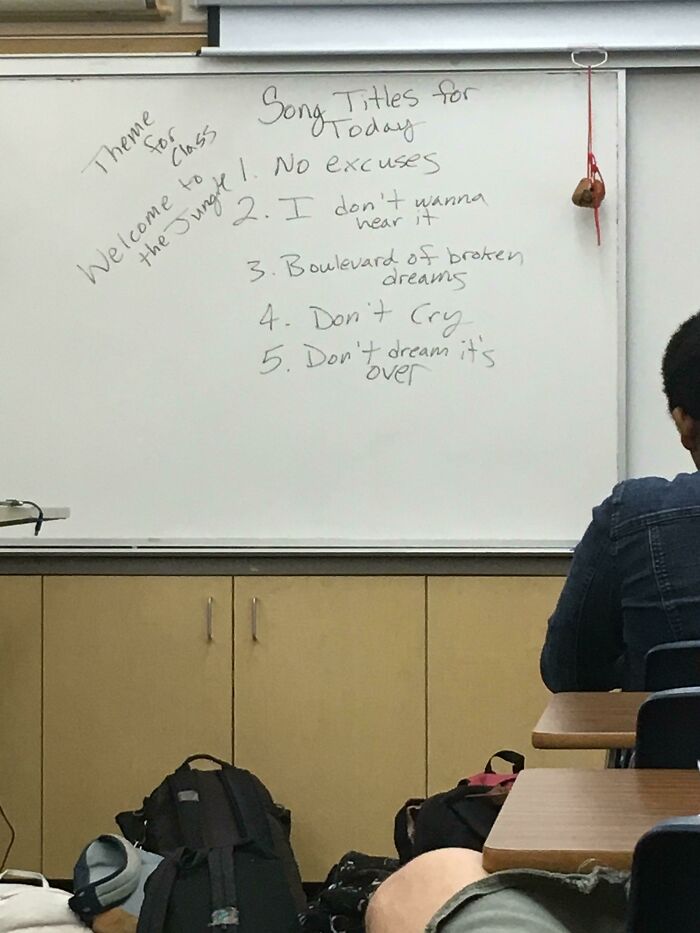 Song Titles for
Today
1. No excuses
2. I don't wanna
hear it
3. Boulevard of broken
dreams
4. Don't Cry
5. Don't dream it's
over
Theme
for
Class
Welcome to
the Jungle